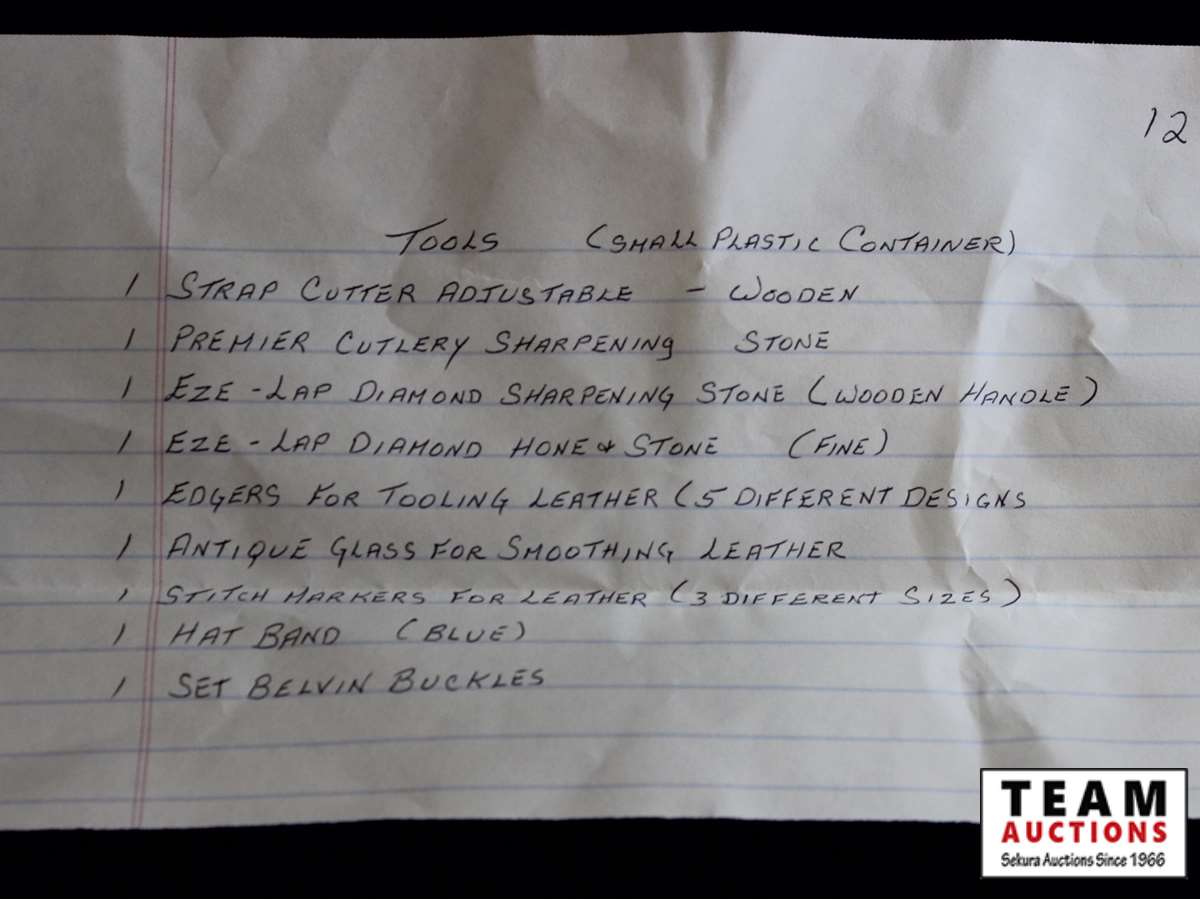 12
TOOLS (SMALL PLASTIC CONTAINER)
1 STRAP CUTTER ADJUSTABLE - WOODEN
1 PREMIER CUTLERY SHARPENING STONE
1 EZE-LAP DIAMOND SHARPENING STONE (WOODEN HANDLE)
1 EZE-LAP DIAMOND HONE & STONE (FINE)
1 EDGERS FOR TOOLING LEATHER (5 DIFFERENT DESIGNS
1 ANTIQUE GLASS FOR SMOOTHING LEATHER
1 STITCH MARKERS FOR LEATHER (3 DIFFERENT SIZES)
1 HAT BAND (BLUE)
1 SET BELVIN BUCKLES
TEAM
AUCTIONS
Sekura Auctions Since 1966